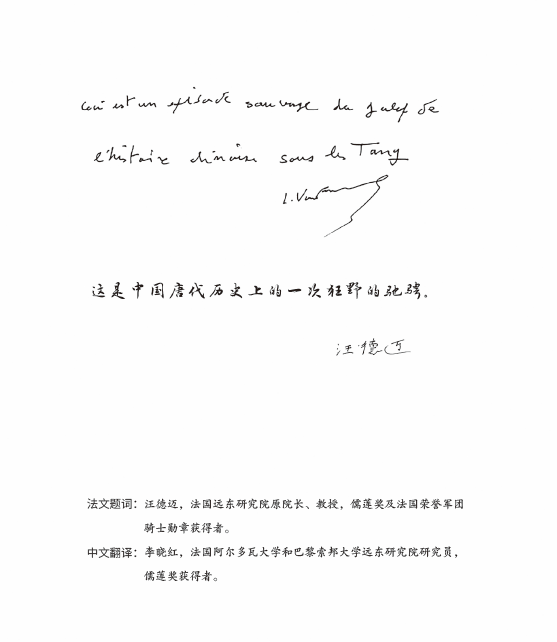 Ceci est un épisode sauvage du galop de
l'histoire chinoise sous les Tang
L. Vandermeersch
这是中国唐代历史上的一次狂野的驰骋。
汪德迈
法文题词：汪德迈，法国远东研究院原院长、教授，儒莲奖及法国荣誉军团
骑士勋章获得者。
中文翻译：李晓红，法国阿尔多瓦大学和巴黎索邦大学远东研究院研究员，
儒莲奖获得者。